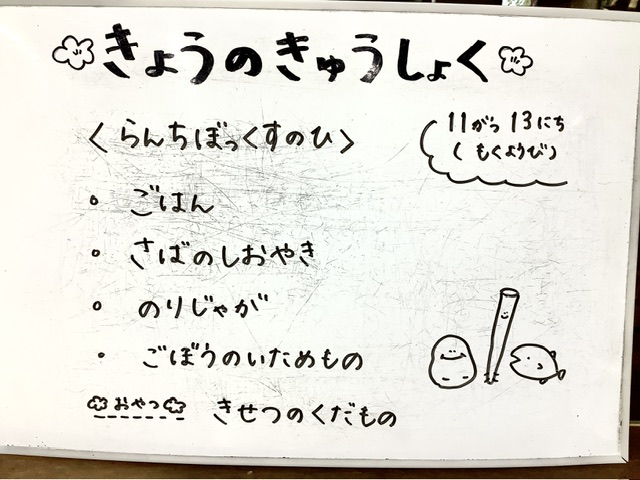 きょうのきゅうしょく
11がつ 13にち
(もくようび)
〈らんちぼっくすのひ〉
• ごはん
• さばのしおやき
• のりじゃが
• ごぼうのいためもの
おやつ きせつのくだもの